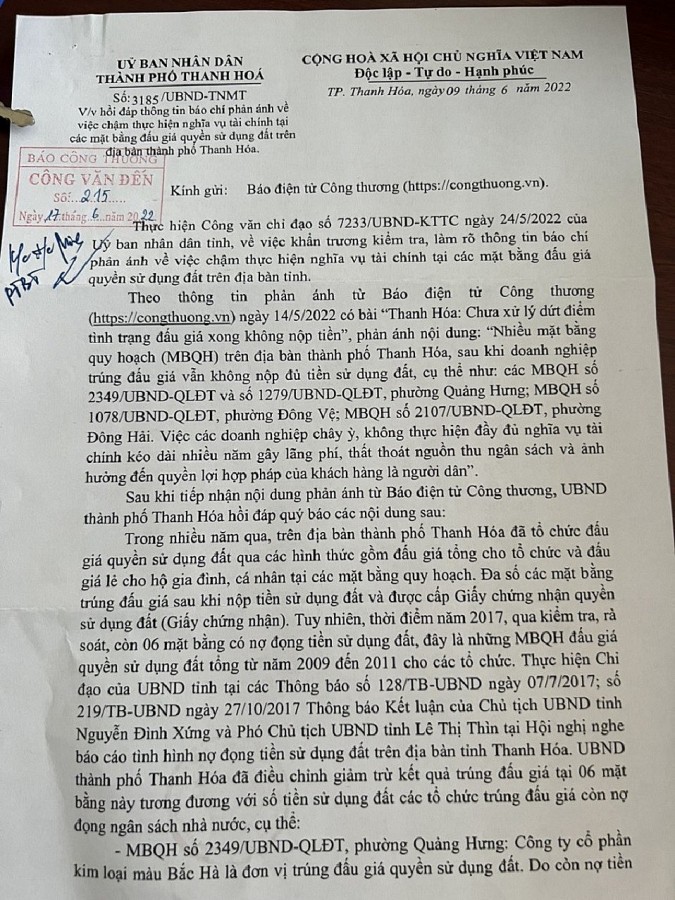 UỶ BAN NHÂN DÂN
THÀNH PHỐ THANH HOÁ
CỘNG HOÀ XÃ HỘI CHỦ NGHĨA VIỆT NAM
Độc lập - Tự do - Hạnh phúc
Số: 3185/UBND-TNMT
TP. Thanh Hóa, ngày 09 tháng 6 năm 2022
V/v hồi đáp thông tin báo chí phản ánh về
việc chậm thực hiện nghĩa vụ tài chính tại
các mặt bằng đấu giá quyền sử dụng đất trên
địa bàn thành phố Thanh Hóa.
BÁO CÔNG THƯƠNG
CÔNG VĂN ĐẾN
Số: 215
Ngày 17 tháng 6 năm 2022
Kính gửi: Báo điện tử Công thương (https://congthuong.vn).
Thực hiện Công văn chỉ đạo số 7233/UBND-KTTC ngày 24/5/2022 của
Uỷ ban nhân dân tỉnh, về việc khẩn trương kiểm tra, làm rõ thông tin báo chí
phản ánh về việc chậm thực hiện nghĩa vụ tài chính tại các mặt bằng đấu giá
quyền sử dụng đất trên địa bàn tỉnh.
Theo thông tin phản ánh từ Báo điện tử Công thương
(https://congthuong.vn) ngày 14/5/2022 có bài “Thanh Hóa: Chưa xử lý dứt điểm
tình trạng đấu giá xong không nộp tiền”, phản ánh nội dung: “Nhiều mặt bằng
quy hoạch (MBQH) trên địa bàn thành phố Thanh Hóa, sau khi doanh nghiệp
trúng đấu giá vẫn không nộp đủ tiền sử dụng đất, cụ thể như: các MBQH số
2349/UBND-QLĐT và số 1279/UBND-QLĐT, phường Quảng Hưng; MBQH số
1078/UBND-QLĐT, phường Đông Vệ; MBQH số 2107/UBND-QLĐT, phường
Đông Hải. Việc các doanh nghiệp chây ỳ, không thực hiện đầy đủ nghĩa vụ tài
chính kéo dài nhiều năm gây lãng phí, thất thoát nguồn thu ngân sách và ảnh
hưởng đến quyền lợi hợp pháp của khách hàng là người dân”.
Sau khi tiếp nhận nội dung phản ánh từ Báo điện tử Công thương, UBND
thành phố Thanh Hóa hồi đáp quý báo các nội dung sau:
Trong nhiều năm qua, trên địa bàn thành phố Thanh Hóa đã tổ chức đấu
giá quyền sử dụng đất qua các hình thức gồm đấu giá tổng cho tổ chức và đấu
giá lẻ cho hộ gia đình, cá nhân tại các mặt bằng quy hoạch. Đa số các mặt bằng
trúng đấu giá sau khi nộp tiền sử dụng đất và được cấp Giấy chứng nhận quyền
sử dụng đất (Giấy chứng nhận). Tuy nhiên, thời điểm năm 2017, qua kiểm tra, rà
soát, còn 06 mặt bằng có nợ đọng tiền sử dụng đất, đây là những MBQH đấu giá
quyền sử dụng đất tổng từ năm 2009 đến 2011 cho các tổ chức. Thực hiện Chỉ
đạo của UBND tỉnh tại các Thông báo số 128/TB-UBND ngày 07/7/2017; số
219/TB-UBND ngày 27/10/2017 Thông báo Kết luận của Chủ tịch UBND tỉnh
Nguyễn Đình Xứng và Phó Chủ tịch UBND tỉnh Lê Thị Thìn tại Hội nghị nghe
báo cáo tình hình nợ đọng tiền sử dụng đất trên địa bàn tỉnh Thanh Hóa. UBND
thành phố Thanh Hóa đã điều chỉnh giảm trừ kết quả trúng đấu giá tại 06 mặt
bằng này tương đương với số tiền sử dụng đất các tổ chức trúng đấu giá còn nợ
đọng ngân sách nhà nước, cụ thể:
- MBQH số 2349/UBND-QLĐT, phường Quảng Hưng: Công ty cổ phần
kim loại màu Bắc Hà là đơn vị trúng đấu giá quyền sử dụng đất. Do còn nợ tiền